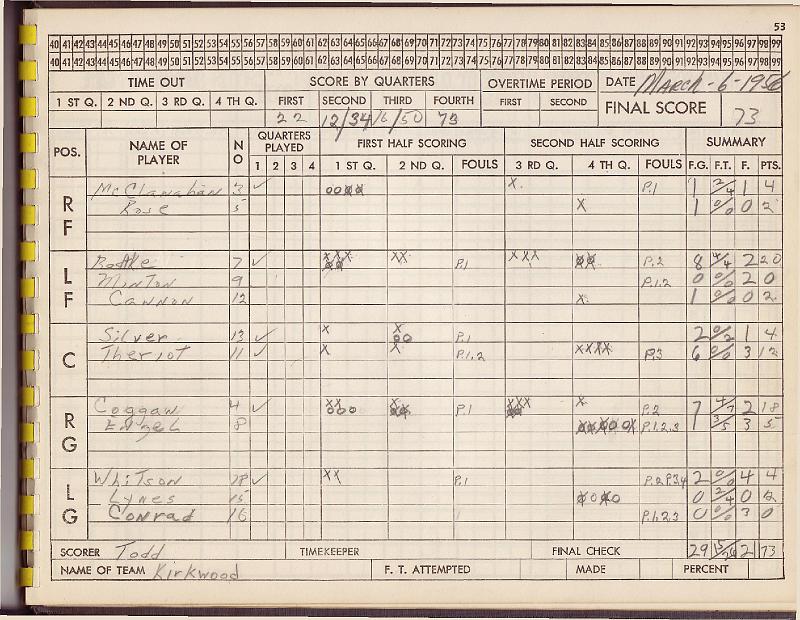 53
40 41 42 43 44 45 46 47 48 49 50 51 52 53 54 55 56 57 58 59 60 61 62 63 64 65 66 67 68 69 70 71 72 73 74 75 76 77 78 79 80 81 82 83 84 85 86 87 88 89 90 91 92 93 94 95 96 97 98 99
40 41 42 43 44 45 46 47 48 49 50 51 52 53 54 55 56 57 58 59 60 61 62 63 64 65 66 67 68 69 70 71 72 73 74 75 76 77 78 79 80 81 82 83 84 85 86 87 88 89 90 91 92 93 94 95 96 97 98 99
TIME OUT SCORE BY QUARTERS OVERTIME PERIOD DATE March-6-1956
1 ST Q. 2 ND Q. 3 RD Q. 4 TH Q. FIRST SECOND THIRD FOURTH FIRST SECOND FINAL SCORE 73
22 12/34 16/50 73
POS. NAME OF PLAYER NO QUARTERS PLAYED FIRST HALF SCORING SECOND HALF SCORING SUMMARY
1 2 3 4 1 ST Q. 2 ND Q. FOULS 3 RD Q. 4 TH Q. FOULS F.G. F.T. F. PTS.
RF
McClanahan 3 ✓ X P.1 1 2/4 1 4
Rose 5 X 1 0/0 0 2
LF
7 ✓ XXX XX P.1 XXX P.2 8 4/4 2 20
Minton 9 P.1.2 0 0/0 2 0
Cannon 12 X 1 0/0 0 2
C
Silver 13 ✓ X X 00 P.1 2 0/2 1 4
Theriot 11 ✓ X X P.1.2 XXXX P.3 6 0/0 3 12
RG
Coggan 4 ✓ XX X P.1 XXX X P.2 7 4/7 2 18
Engel 8 P.1.2.3 1 3/5 3 5
LG
Whitson ✓ XX P.1 P.2 P.3.4 2 0/0 4 4
Lynes 15 0 2/4 0 2
Conrad 16 P.1.2.3 0 0/0 3 0
SCORER Todd TIMEKEEPER FINAL CHECK 29 15/26 21 73
NAME OF TEAM Kirkwood F. T. ATTEMPTED MADE PERCENT